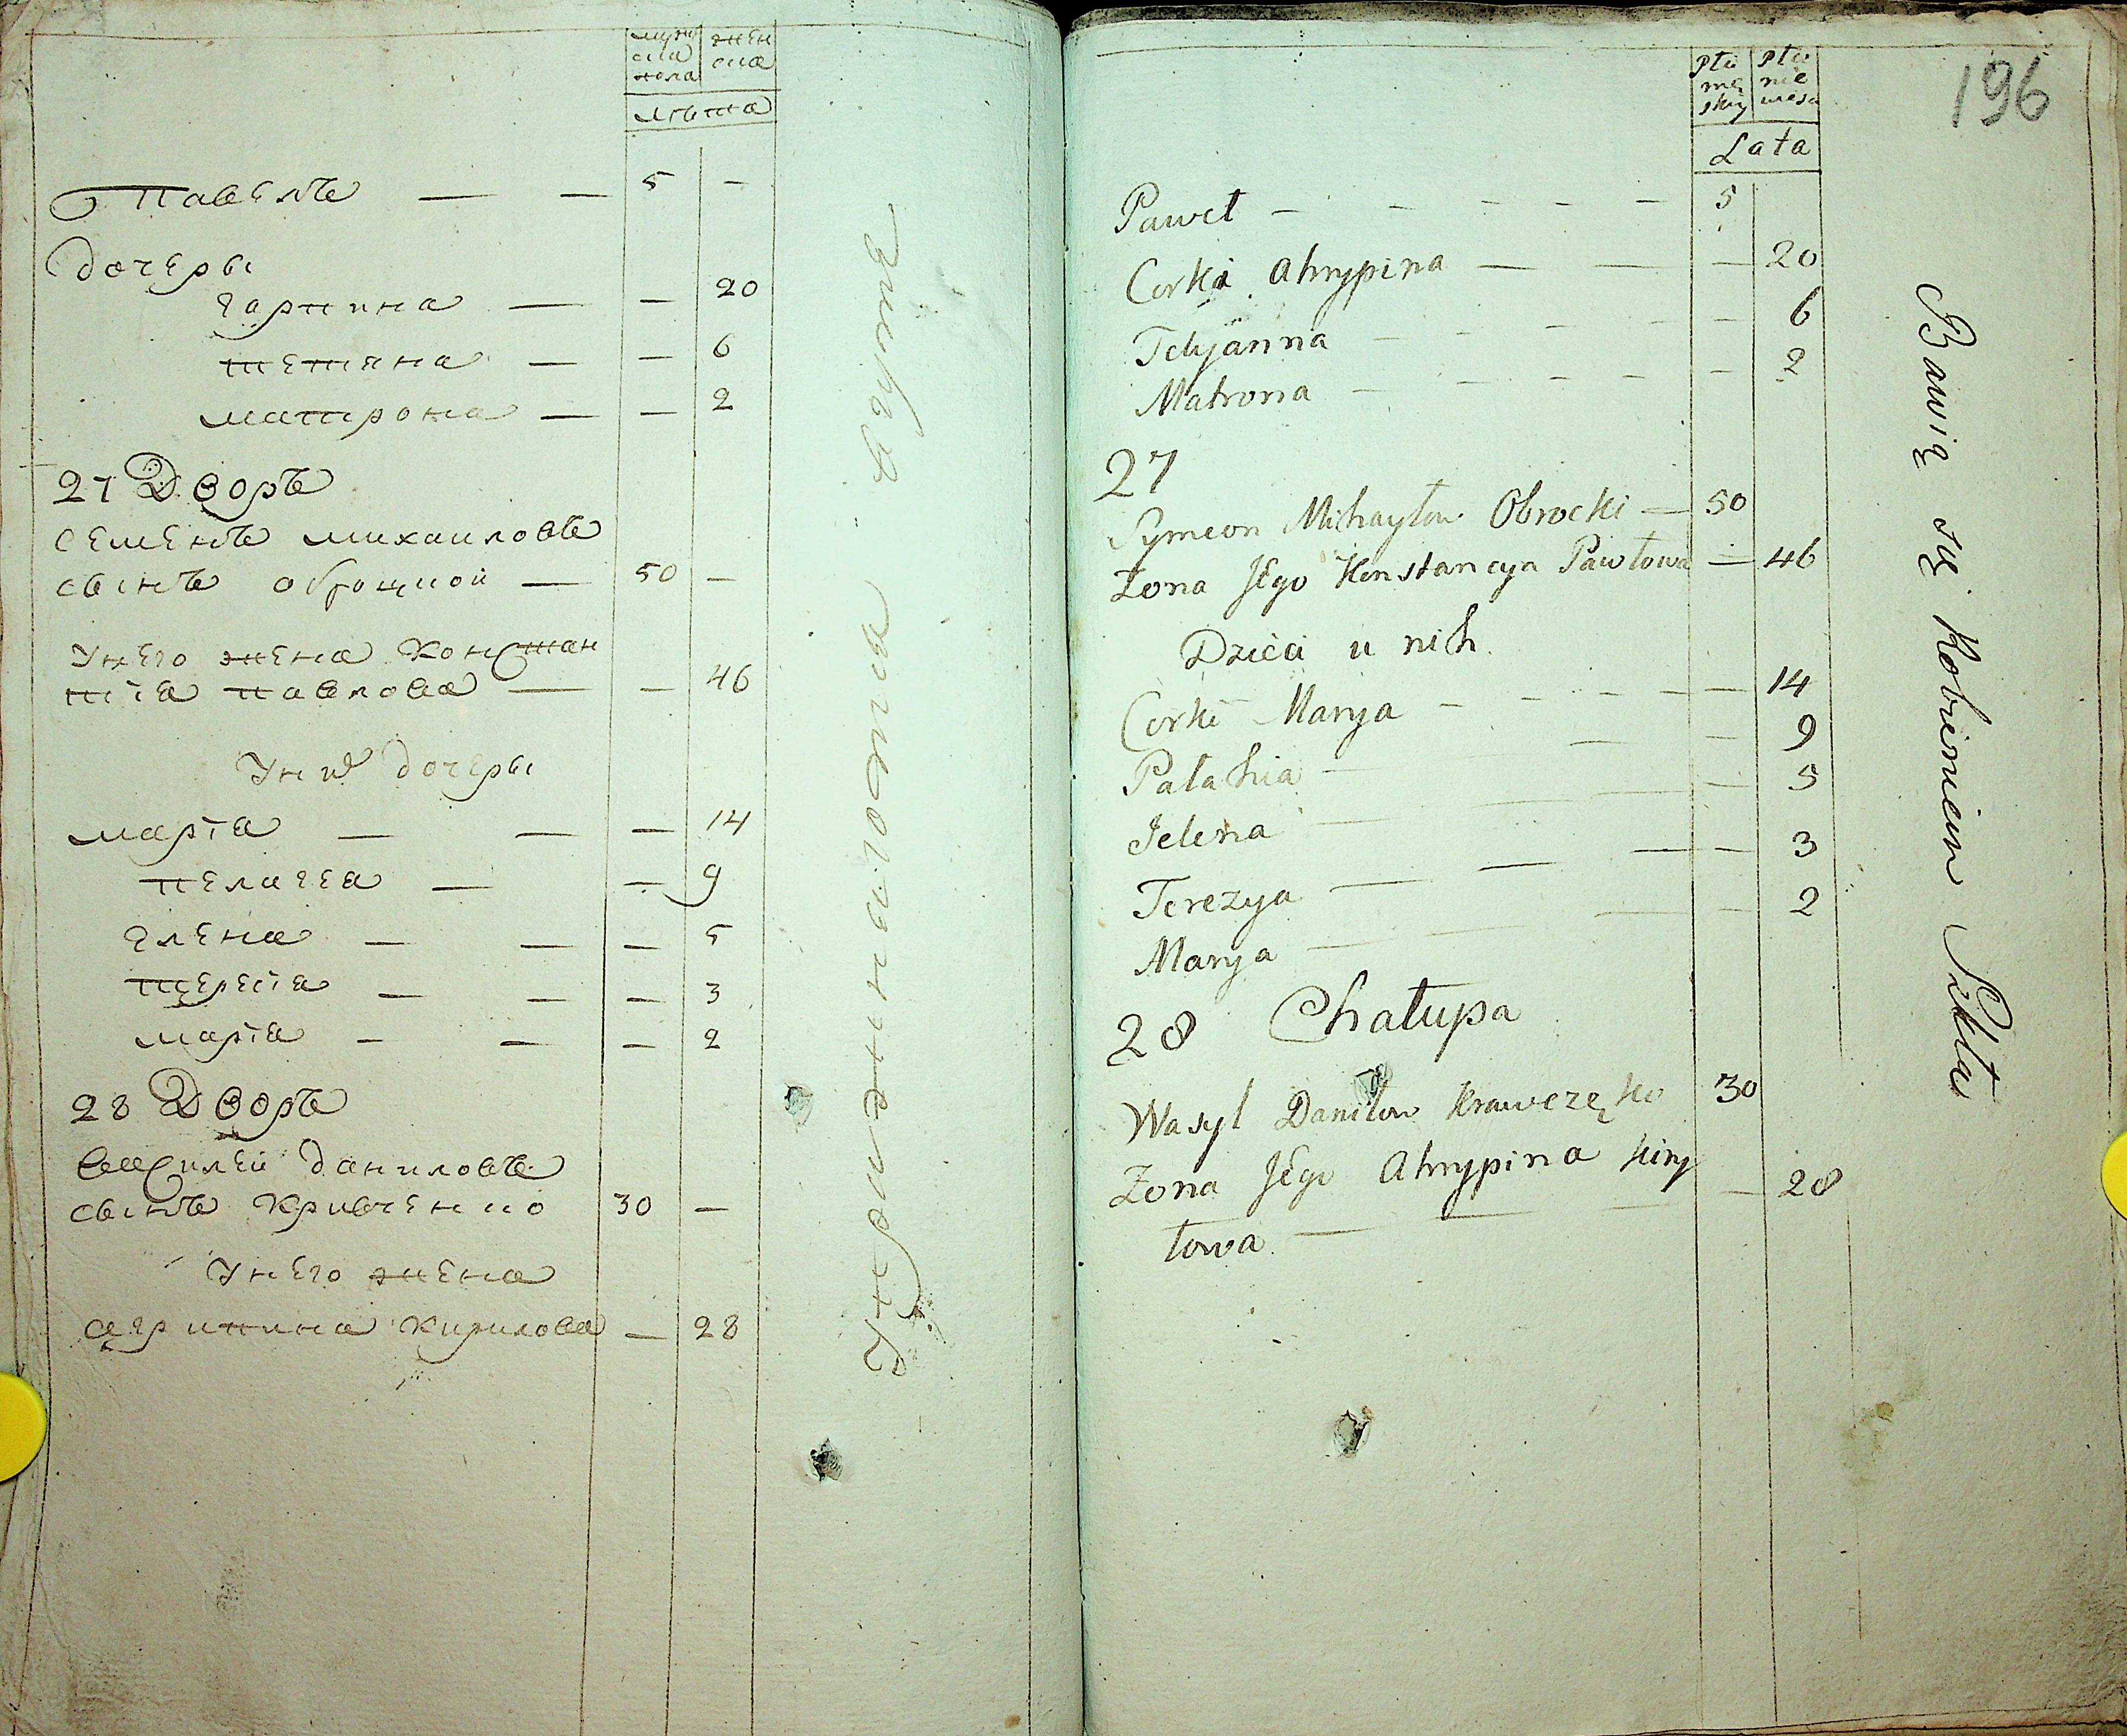 мужс
ска
пола
жен
ска
лета
Павелъ — — 5 —
дочеры
гарпина — — 20
тетяна — — 6
матрона — — 2
27 Дворъ
Семенъ михаиловъ
сынъ оброцкой — 50 —
У него жена Констан
тїя павлова — — 46
У них дочеры
марїя — — — 14
пелагея — — 9
елена — — — 5
тересїя — — — 3
марїя — — — 2
28 Дворъ
василей даниловъ
сынъ Кривченко 30 —
У него жена
агрипина Кирилова — 28
196
Płci
mę
skiy
Płci
nie
wiesc
Lata
Paweł — — — — — 5
Corki Ahrypina — — — 20
Tetyanna — — — — — 6
Matrona — — — — — 2
27
Symeon Mihayłow Obrocki — 50
Żona Jego Konstancya Pawłowa — 46
Dzieci u nih
Corki Marya — — — — — 14
Pałahia — — — 9
Jelena — — — 5
Terezya — — — — 3
Marya — — — — 2
28 Chałupa
Wasyl Daniłow Krawczęko 30
Żona Jego Ahrypina Kiry
łowa — — — — 28
Bawią się Robieniem Szkła